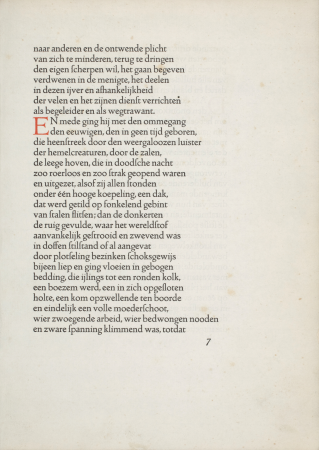 naar anderen en de ontwende plicht
van zich te minderen, terug te dringen
den eigen scherpen wil, het gaan begeven
verdwenen in de menigte, het deelen
in dezen ijver en afhankelijkheid
der velen en het zijnen dienst verrichten
als begeleider en als wegtrawant.
EN mede ging hij met den ommegang
den eeuwigen, den in geen tijd geboren,
die heenstreek door den weergaloozen luister
der hemelcreaturen, door de zalen,
de leege hoven, die in doodsche nacht
zoo roerloos en zoo strak geopend waren
en uitgezet, alsof zij allen stonden
onder één hooge koepeling, een dak,
dat werd getild op fonkelend gebint
van stalen flitsen; dan de donkerten
de ruig gevulde, waar het wereldstof
aanvankelijk gestrooid en zwevend was
in doffen stilstand of al aangevat
door plotseling bezinken schoksgewijs
bijeen liep en ging vloeien in gebogen
bedding, die ijlings tot een ronden kolk,
een boezem werd, een in zich opgesloten
holte, een kom opzwellende ten boorde
en eindelijk een volle moederschoot,
wier zwoegende arbeid, wier bedwongen nooden
en zware spanning klimmend was, totdat
7